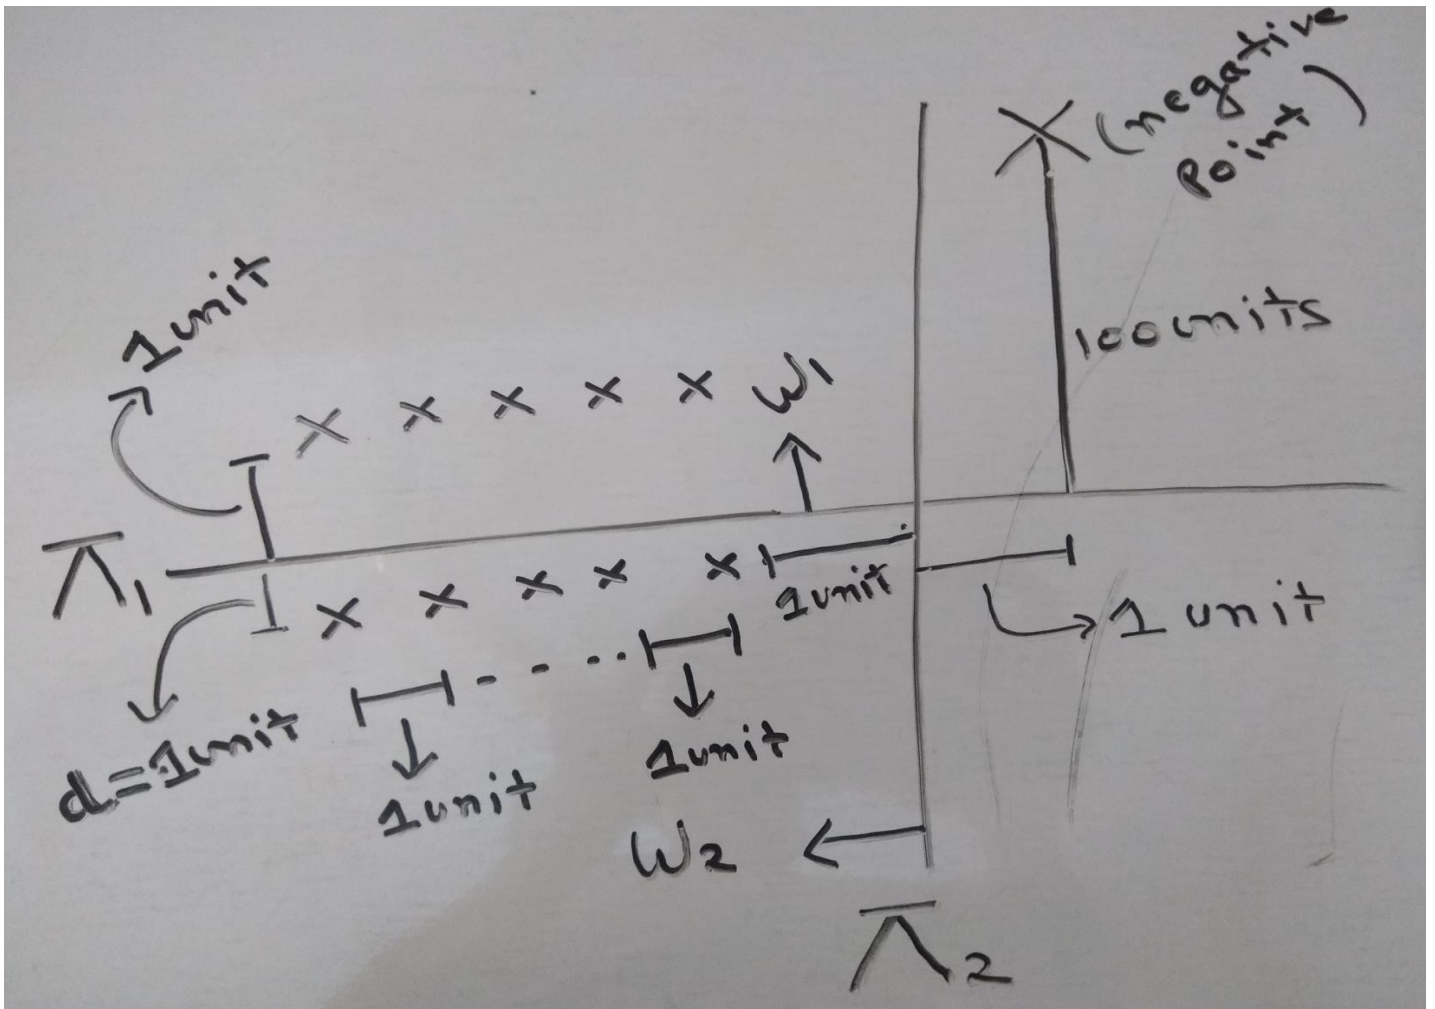 (negative
Point)
1unit
100units
W1
π1
1unit
1 unit
d=1unit
1unit
1unit
W2
π2